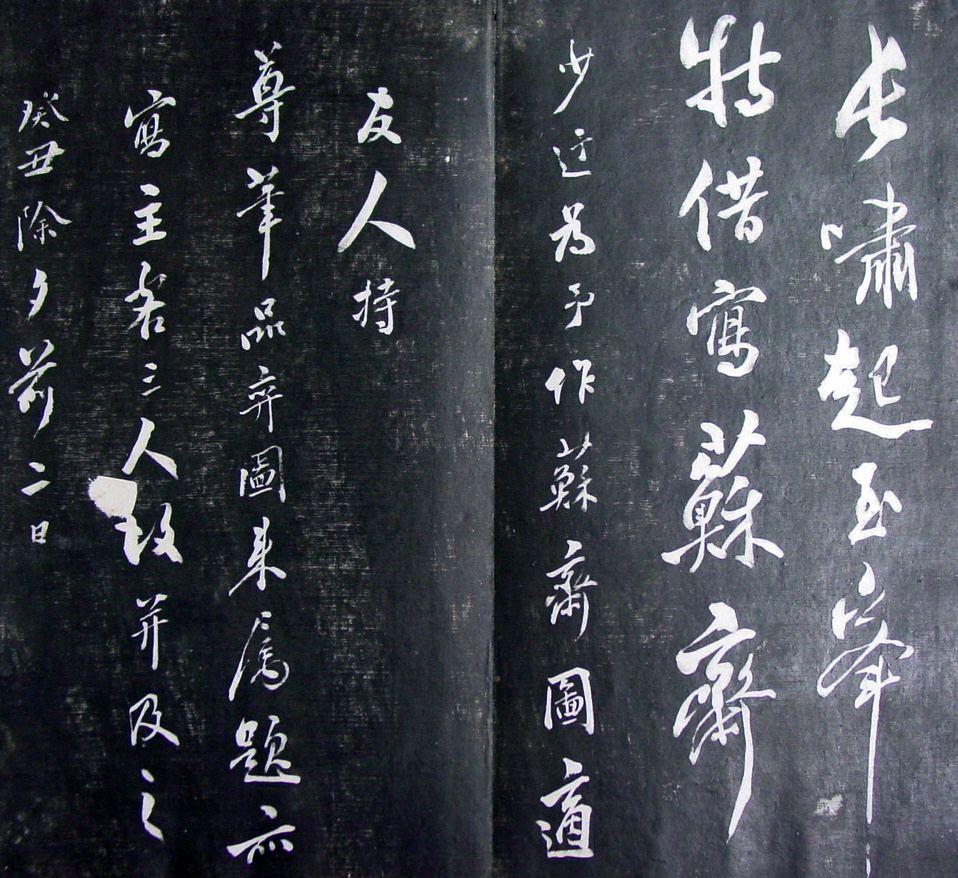 長嘯起玉峯
特借寫蘇齋
少迂為予作蘇齋圖適
友人持
尊筆品弈圖來属題亦
寫主客三人故并及之
癸丑除夕前二日